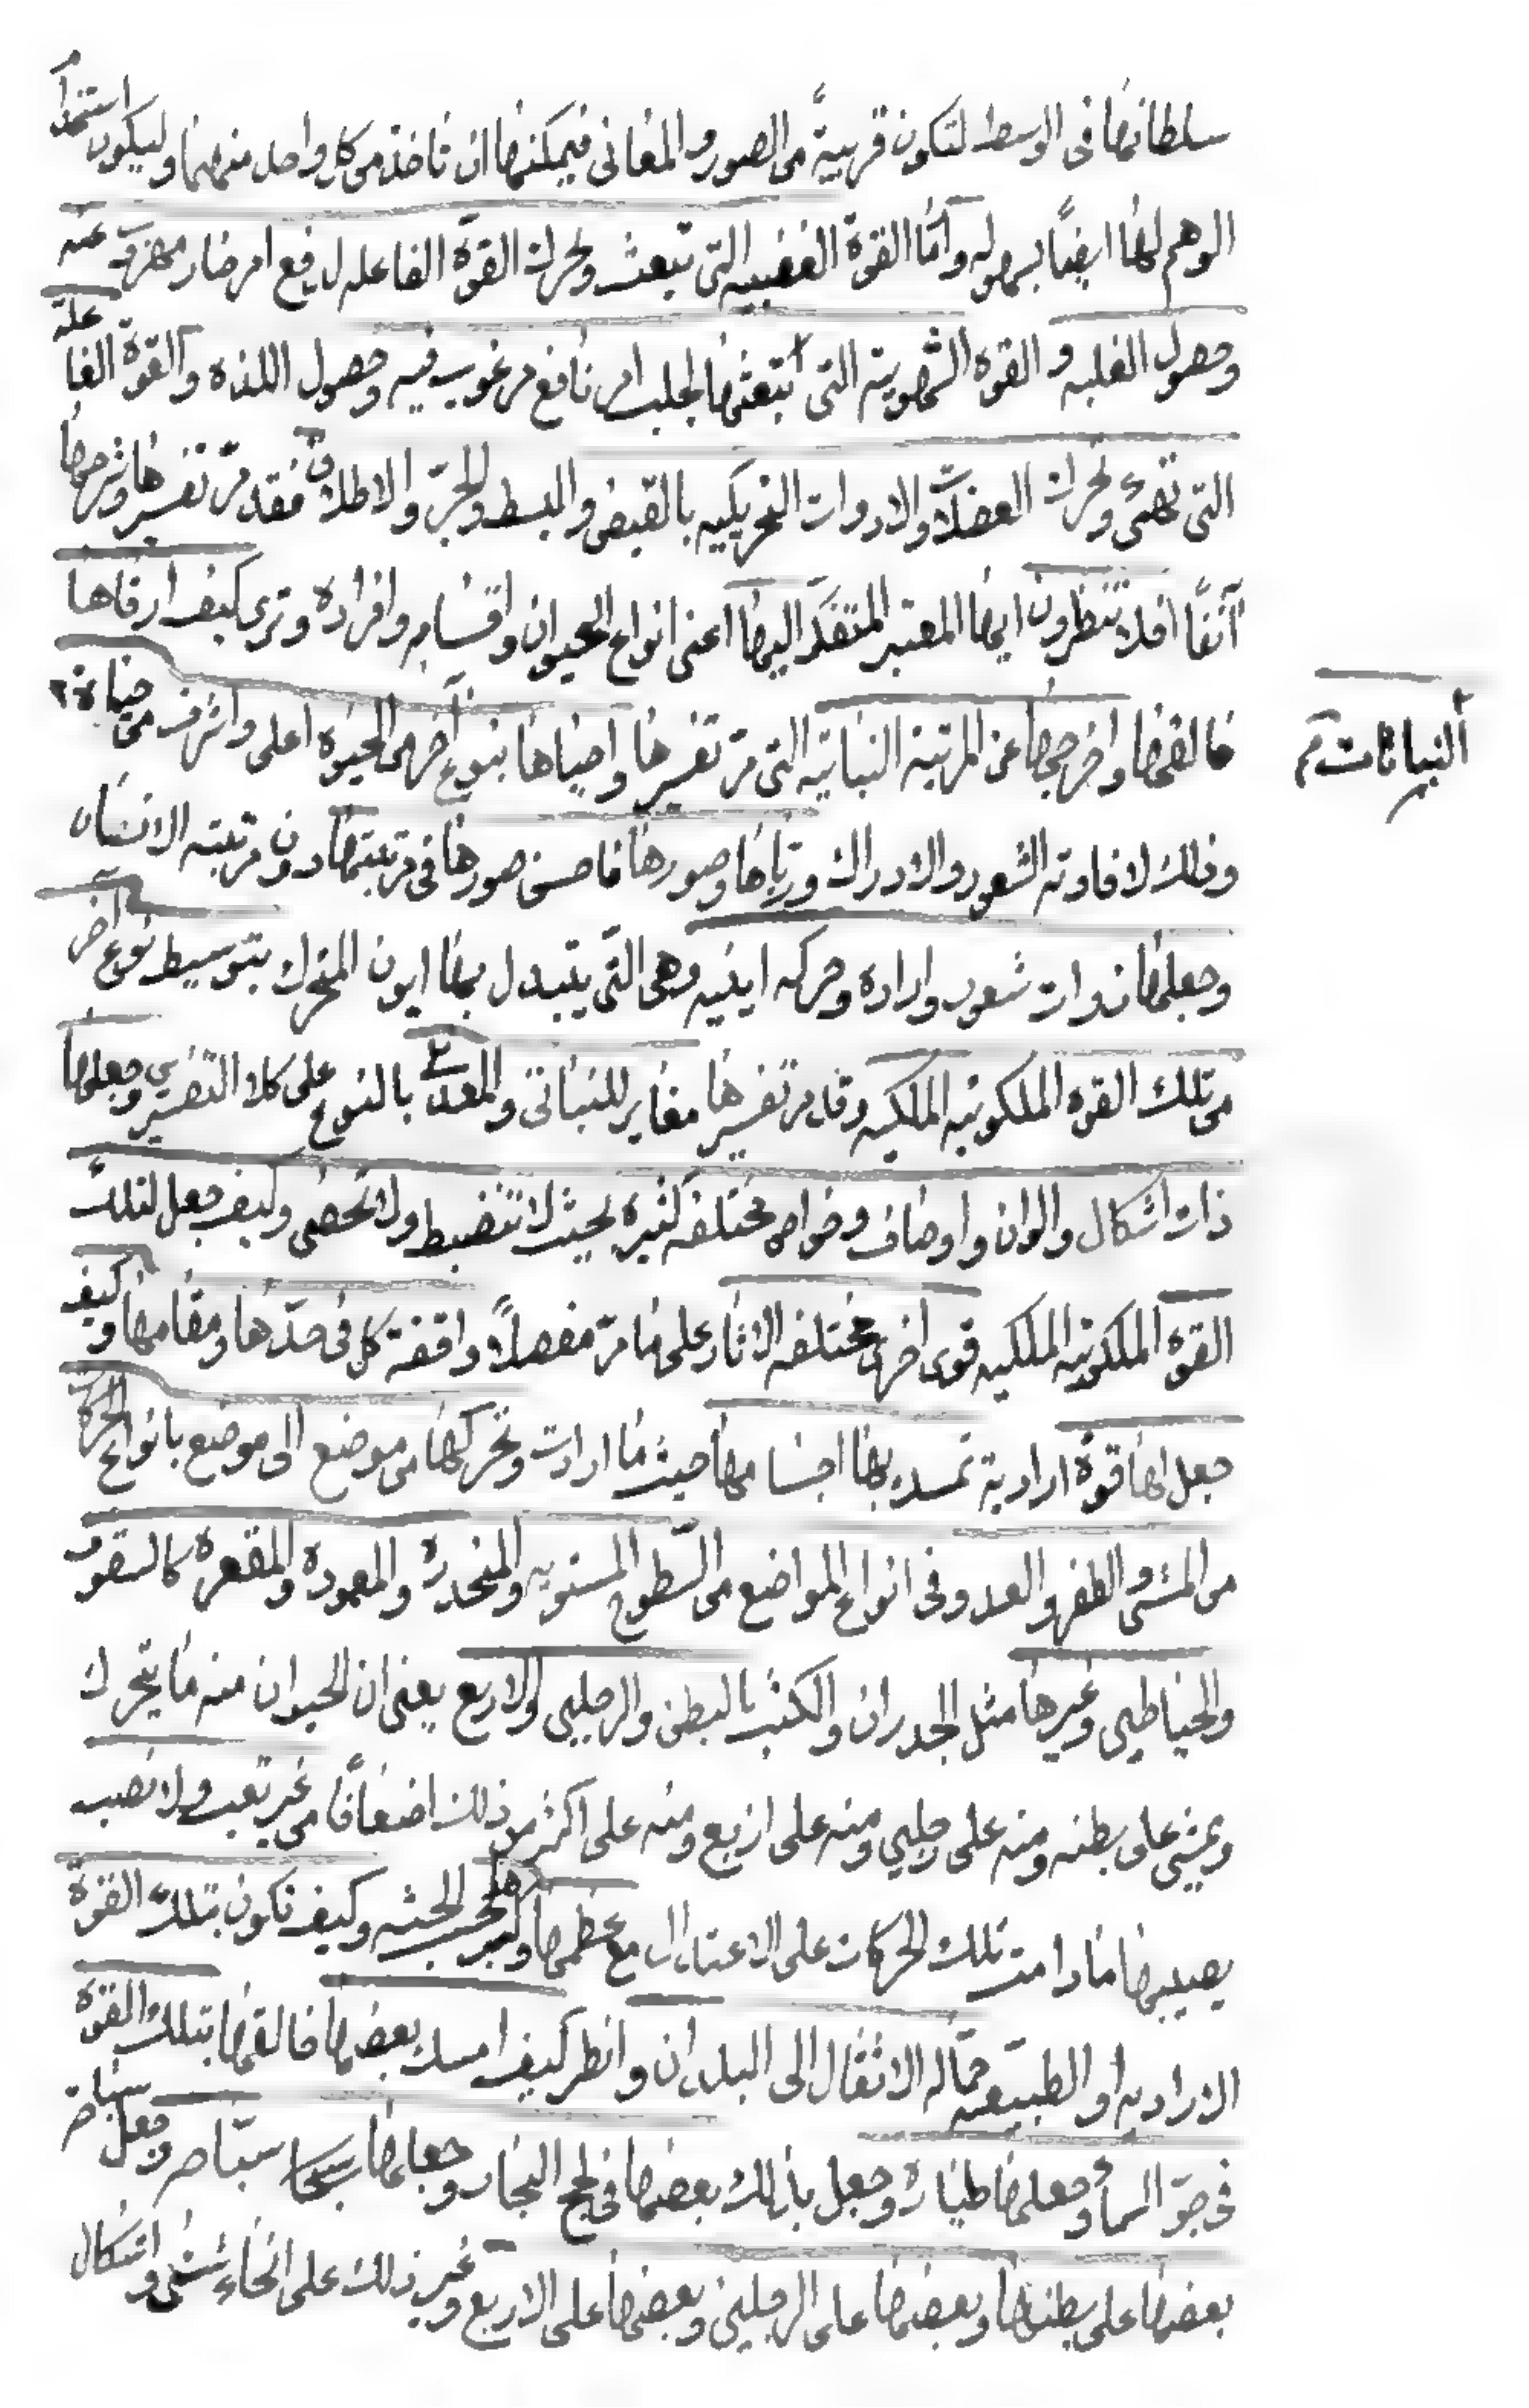 سلطانها فى الوسط لتكون قريبةً من الصور والمعانى فيمكنها ان تاخذ من كل واحد منهما وليكون استخدام
الوهم لها ايضًا بسهوله وامّا القوة الغضبيه التى تبعث وتحرك القوّة الفاعله لدفع امر ضار مهروب عنه
وحصول الغلبه و القوه الشهويّه التى تبتعثها لجلب امر نافع مرغوب فيه وحصول اللذه والقوّة الفاعله
التى تهئ وتحرك العضلات والادوات التحريكيه بالقبض والبسط والجرّ والاطلاق فقد مرّ تفسيرها وشرحها
آنفًا افلا تنظرون ايها المعتبر المتفكّر اليها اعنى انواع الحيوان واقسامه وافراده وترى كيف ارقاها
خالقها واخرجها عن المرتبة النباتيّه التى مرّ تفسيرها واحياها بنوع آخر من الحيوه اعلى واشرف من حياة
النباتات
وذلك لافادته الشعور والادراك وربّاها وصورها فاحسن صورها فى مرتبتها دون مرتبته الانسان
وجعلها ذوات شعور واراده وحركه اينيّه وهى التّى يتبدل بها ايون المتحرك بتوسيط نوع آخر
من تلك القوه الملكوتيّه الملكيه وقد مر تفسيرها مغاير للنباتى والمعدنى بالنوع على كلا التفسيرين وجعلها
ذات اشكال والوان واوصاف وخواص مختلفه كثيره بحيث لا تنضبط ولا تحصى وكيف جعل لتلك
القوة الملكوتيه الملكيه قوى اخرى مختلفه الاثار على ما مرّ مفصلاً واقفة كل فى حدّها ومقامها وكيف
جعل لها قوة اراديه تمسك بها اجسامها حيث ما ارادت وتحركها من موضع الى موضع بانواع الحركة
من المشى والطفر والعدو فى انواع المواضع من السّطوح المستويه والمنحدرة والمعوده والمقعره كالسقوف
والحياطين وغيرها مثل الجدران والكثب بالبطن والرجلين والاربع يعنى ان الحيوان منه ما يتحرك
ويمشى على بطنه ومنه على رجلين ومنه على اربع ومنه على اكثر من ذلك اضعافًا من غير تعب ولا نصب
يصيبها ما دامت تلك الحركات على الاعتدال مع عظمها وكبر الجثه وكيف تكون بتلك القوّة
الاراديه او الطبيعيّه حمّاله الاثقال الى البلدان وانظر كيف امسك بعضها خالقها بتلك القوّة
فى جوّ السماء وجعلها طيّارة وجعل بذلك بعضها فى لجج البحار وجعلها سبّاحه وجعل
بعضها على بطنها وبعضها على الرجلين وبعضها على الاربع وغير ذلك على انحاء شتّى واشكال